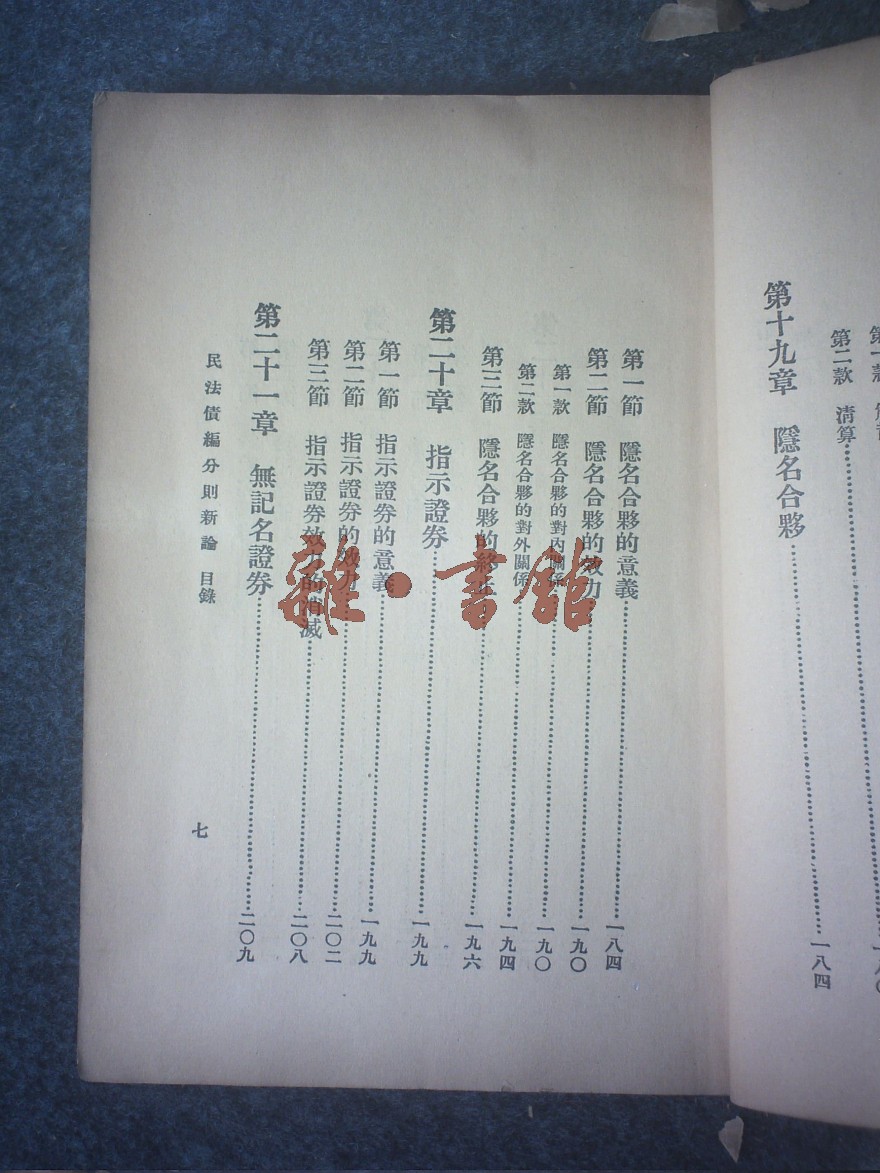 第二款　清算……一八〇
第十九章　隱名合夥……一八四
第一節　隱名合夥的意義……一八四
第二節　隱名合夥的效力……一九〇
第一款　隱名合夥的對內關係……一九〇
第二款　隱名合夥的對外關係……一九四
第三節　隱名合夥的終止……一九六
第二十章　指示證券……一九九
第一節　指示證券的意義……一九九
第二節　指示證券的效力……二〇二
第三節　指示證券效力的消滅……二〇八
第二十一章　無記名證券……二〇九
民法債編分則新論　目錄
七
雜·書館